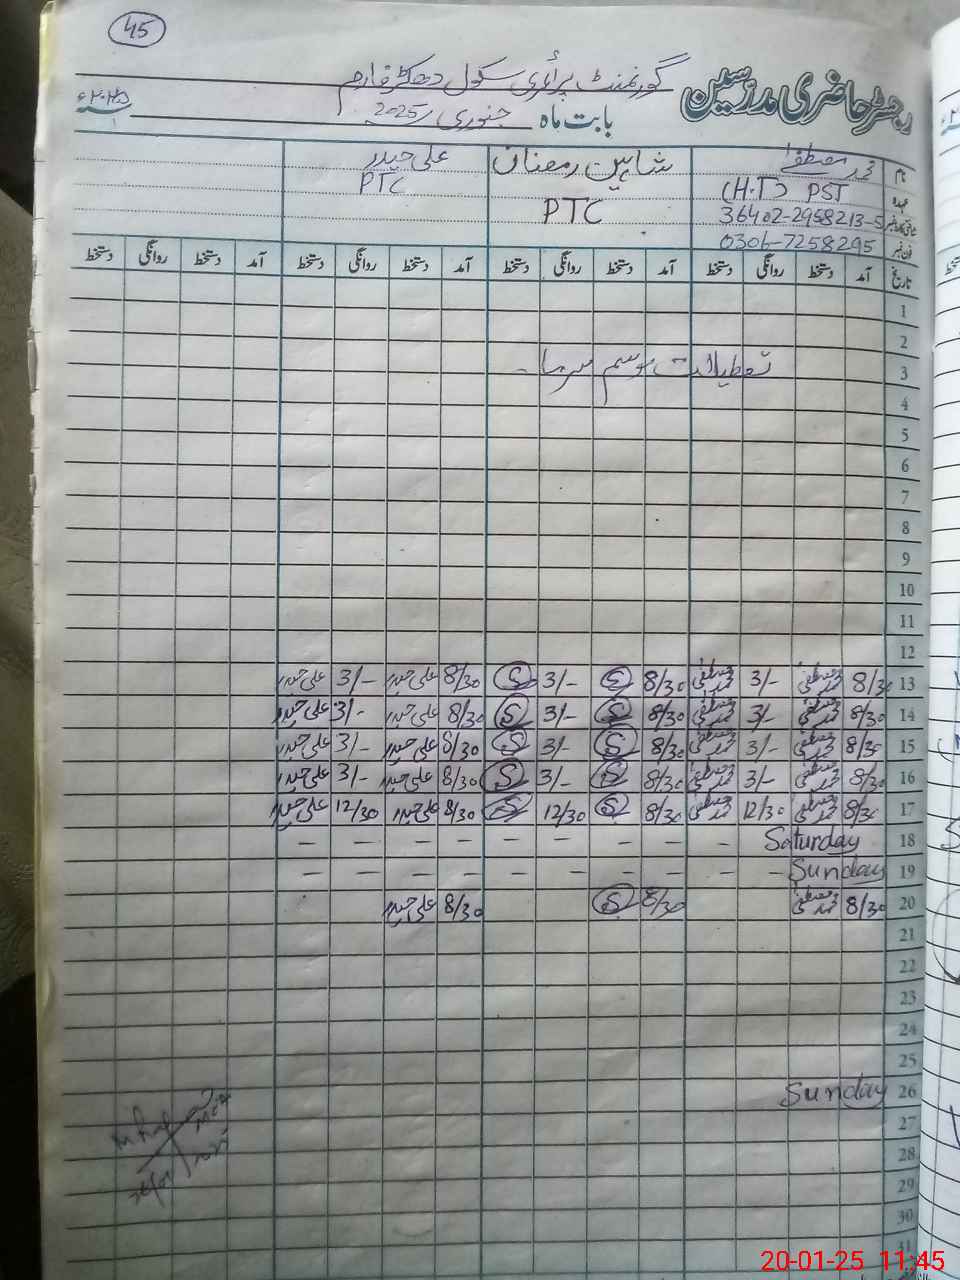 45
رجسٹر حاضری مدرسین گورنمنٹ پرائمری سکول دھکڑ فارم
بابت ماہ جنوری 2025 ۲۰۲۵ء
نام محمد مصطفیٰ شاہین رمضان علی حیدر
عہدہ (H.T) PST PTC PTC
شناختی کارڈ نمبر 36402-2958213-5
فون نمبر 0306-7258295
تاریخ آمد دستخط روانگی دستخط آمد دستخط روانگی دستخط آمد دستخط روانگی دستخط آمد دستخط روانگی دستخط
1
2
3 تعطیلات موسم سرما -
4
5
6
7
8
9
10
11
12
13 8/30 محمد مصطفیٰ 3/- محمد مصطفیٰ 8/30 S 3/- S 8/30 علی حیدر 3/- علی حیدر
14 8/30 محمد مصطفیٰ 3/- محمد مصطفیٰ 8/30 S 3/- S 8/30 علی حیدر 3/- علی حیدر
15 8/30 محمد مصطفیٰ 3/- محمد مصطفیٰ 8/30 S 3/- S 8/30 علی حیدر 3/- علی حیدر
16 8/30 محمد مصطفیٰ 3/- محمد مصطفیٰ 8/30 S 3/- S 8/30 علی حیدر 3/- علی حیدر
17 8/30 محمد مصطفیٰ 12/30 محمد مصطفیٰ 8/30 S 12/30 S 8/30 علی حیدر 12/30 علی حیدر
18 Saturday - - - - - - - - -
19 Sunday - - - - - - - - - -
20 8/30 محمد مصطفیٰ 8/30 S 8/30 علی حیدر
21
22
23
24
25
26 Sunday
27
28
29
30
31
20-01-25 11:45